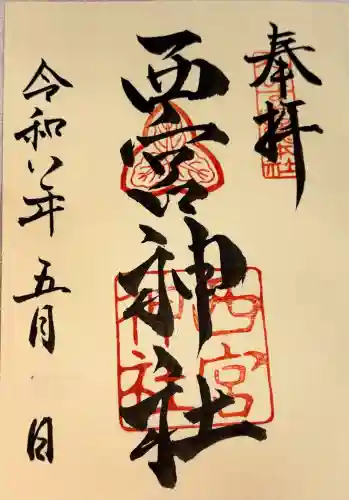 奉拝
西宮神社
西宮
神社
令和八年五月 日